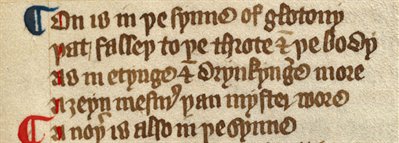 On is in þe synne of glotony
þat falleþ to þe throte & þe body
As in etynge & drynkynge more
Azeyn mesur þan myster wore
An noþ is also in þe synne